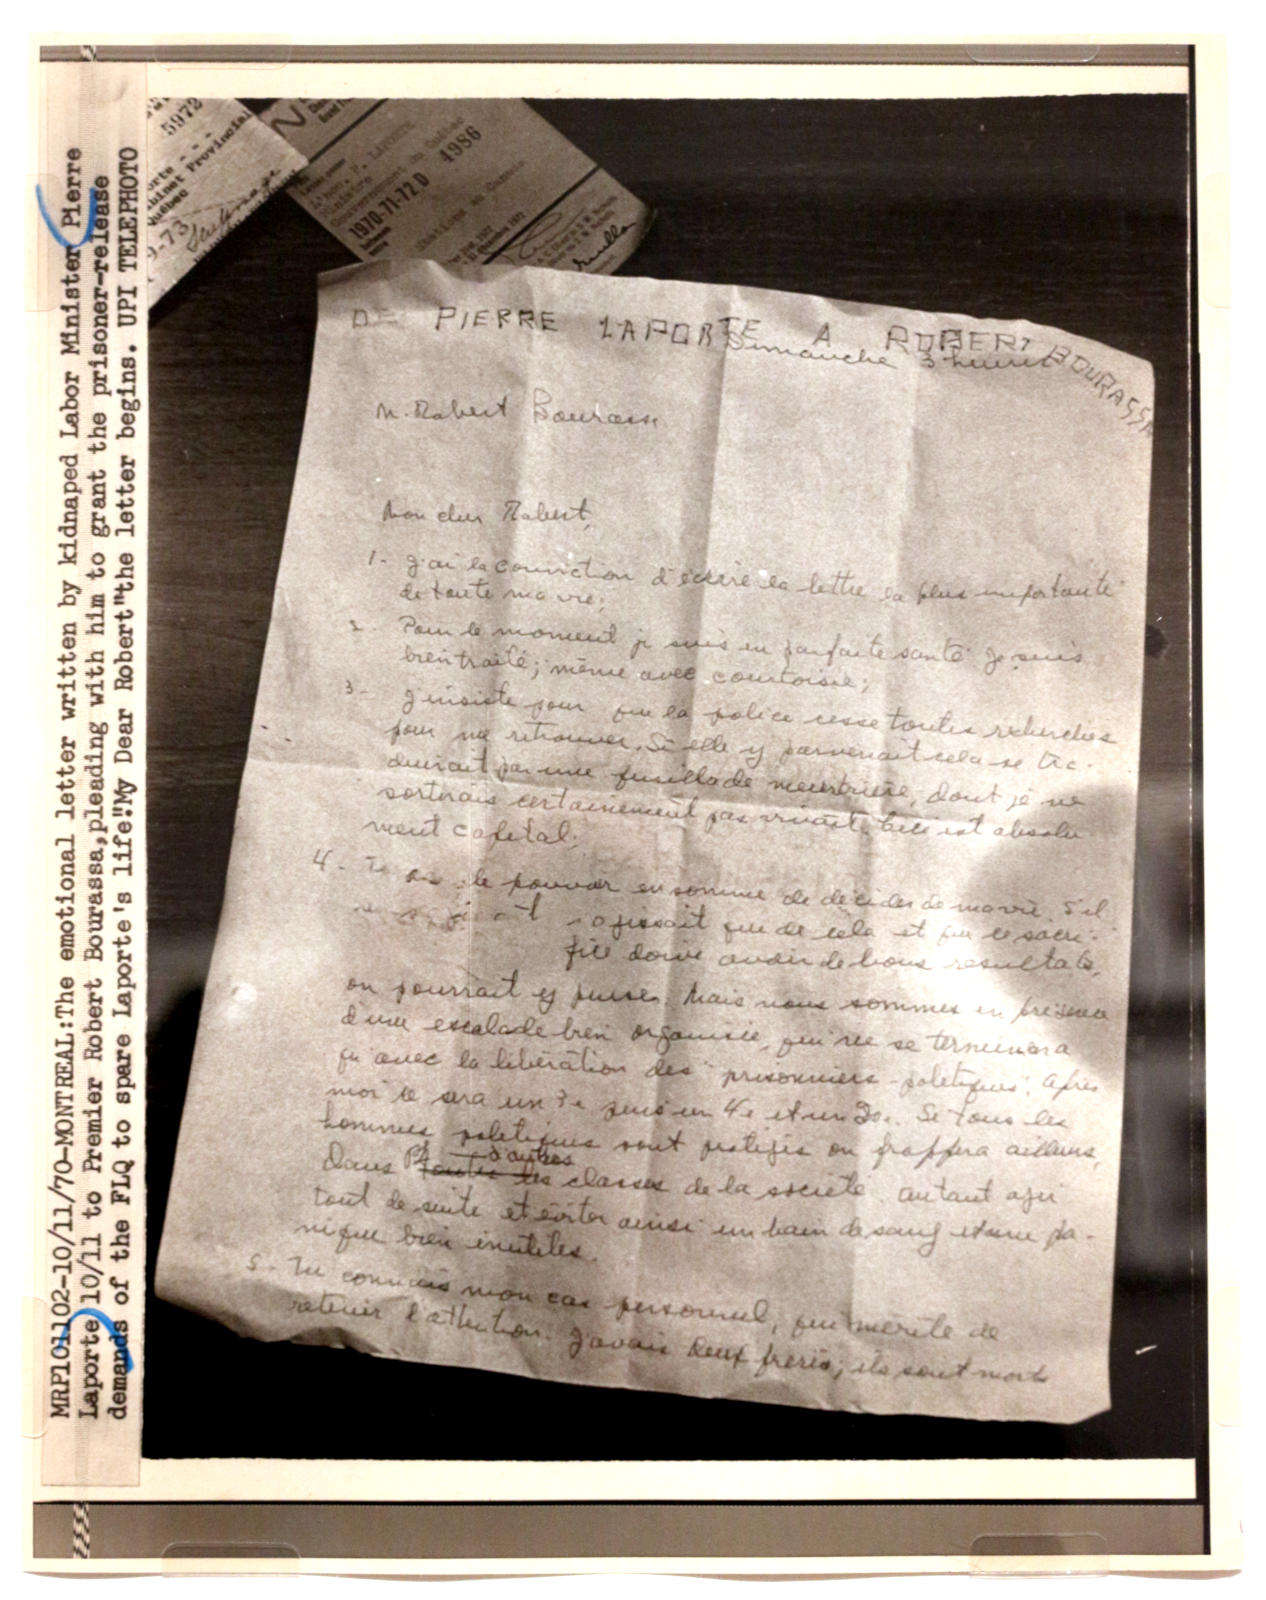 MRP101102-10/11/70-MONTREAL:The emotional letter written by kidnaped Labor Minister Pierre
Laporte 10/11 to Premier Robert Bourassa,pleading with him to grant the prisoner-release
demands of the FLQ to spare Laporte's life!"My Dear Robert"the letter begins. UPI TELEPHOTO
5972
binet Provincial
Québec
9-73
4986
Gouvernement du Québec
1970-71-72 D
DE PIERRE LAPORTE A ROBERT BOURASSA
Dimanche 3 heures
M. Robert Bourassa
Mon cher Robert,
1- J'ai la conviction d'écrire la lettre la plus importante
de toute ma vie;
2- Pour le moment je suis en parfaite santé. Je suis
bien traité; même avec courtoisie;
3- J'insiste pour que la police cesse toutes recherches
pour me retrouver. Si elle y parvenait cela se tra-
duirait par une fusillade meurtrière, dont je ne
sortirais certainement pas vivant. Ceci est absolu
ment capital;
4- Tu as le pouvoir en somme de décider de ma vie. S'il
s'agissait que de cela et que ce sacri-
fice doive avoir de bons résultats,
on pourrait y penser. Mais nous sommes en présence
d'une escalade bien organisée, qui ne se terminera
qu'avec la libération des prisonniers politiques. Après
moi ce sera un 3e, puis un 4e et un 20e. Si tous les
hommes politiques sont protégés on frappera ailleurs,
dans toutes les d'autres classes de la société. Autant agir
tout de suite et éviter ainsi un bain de sang et une pa-
nique bien inutiles.
5- Tu connais mon cas personnel, qui mérite de
retenir l'attention. J'avais deux frères; ils sont morts